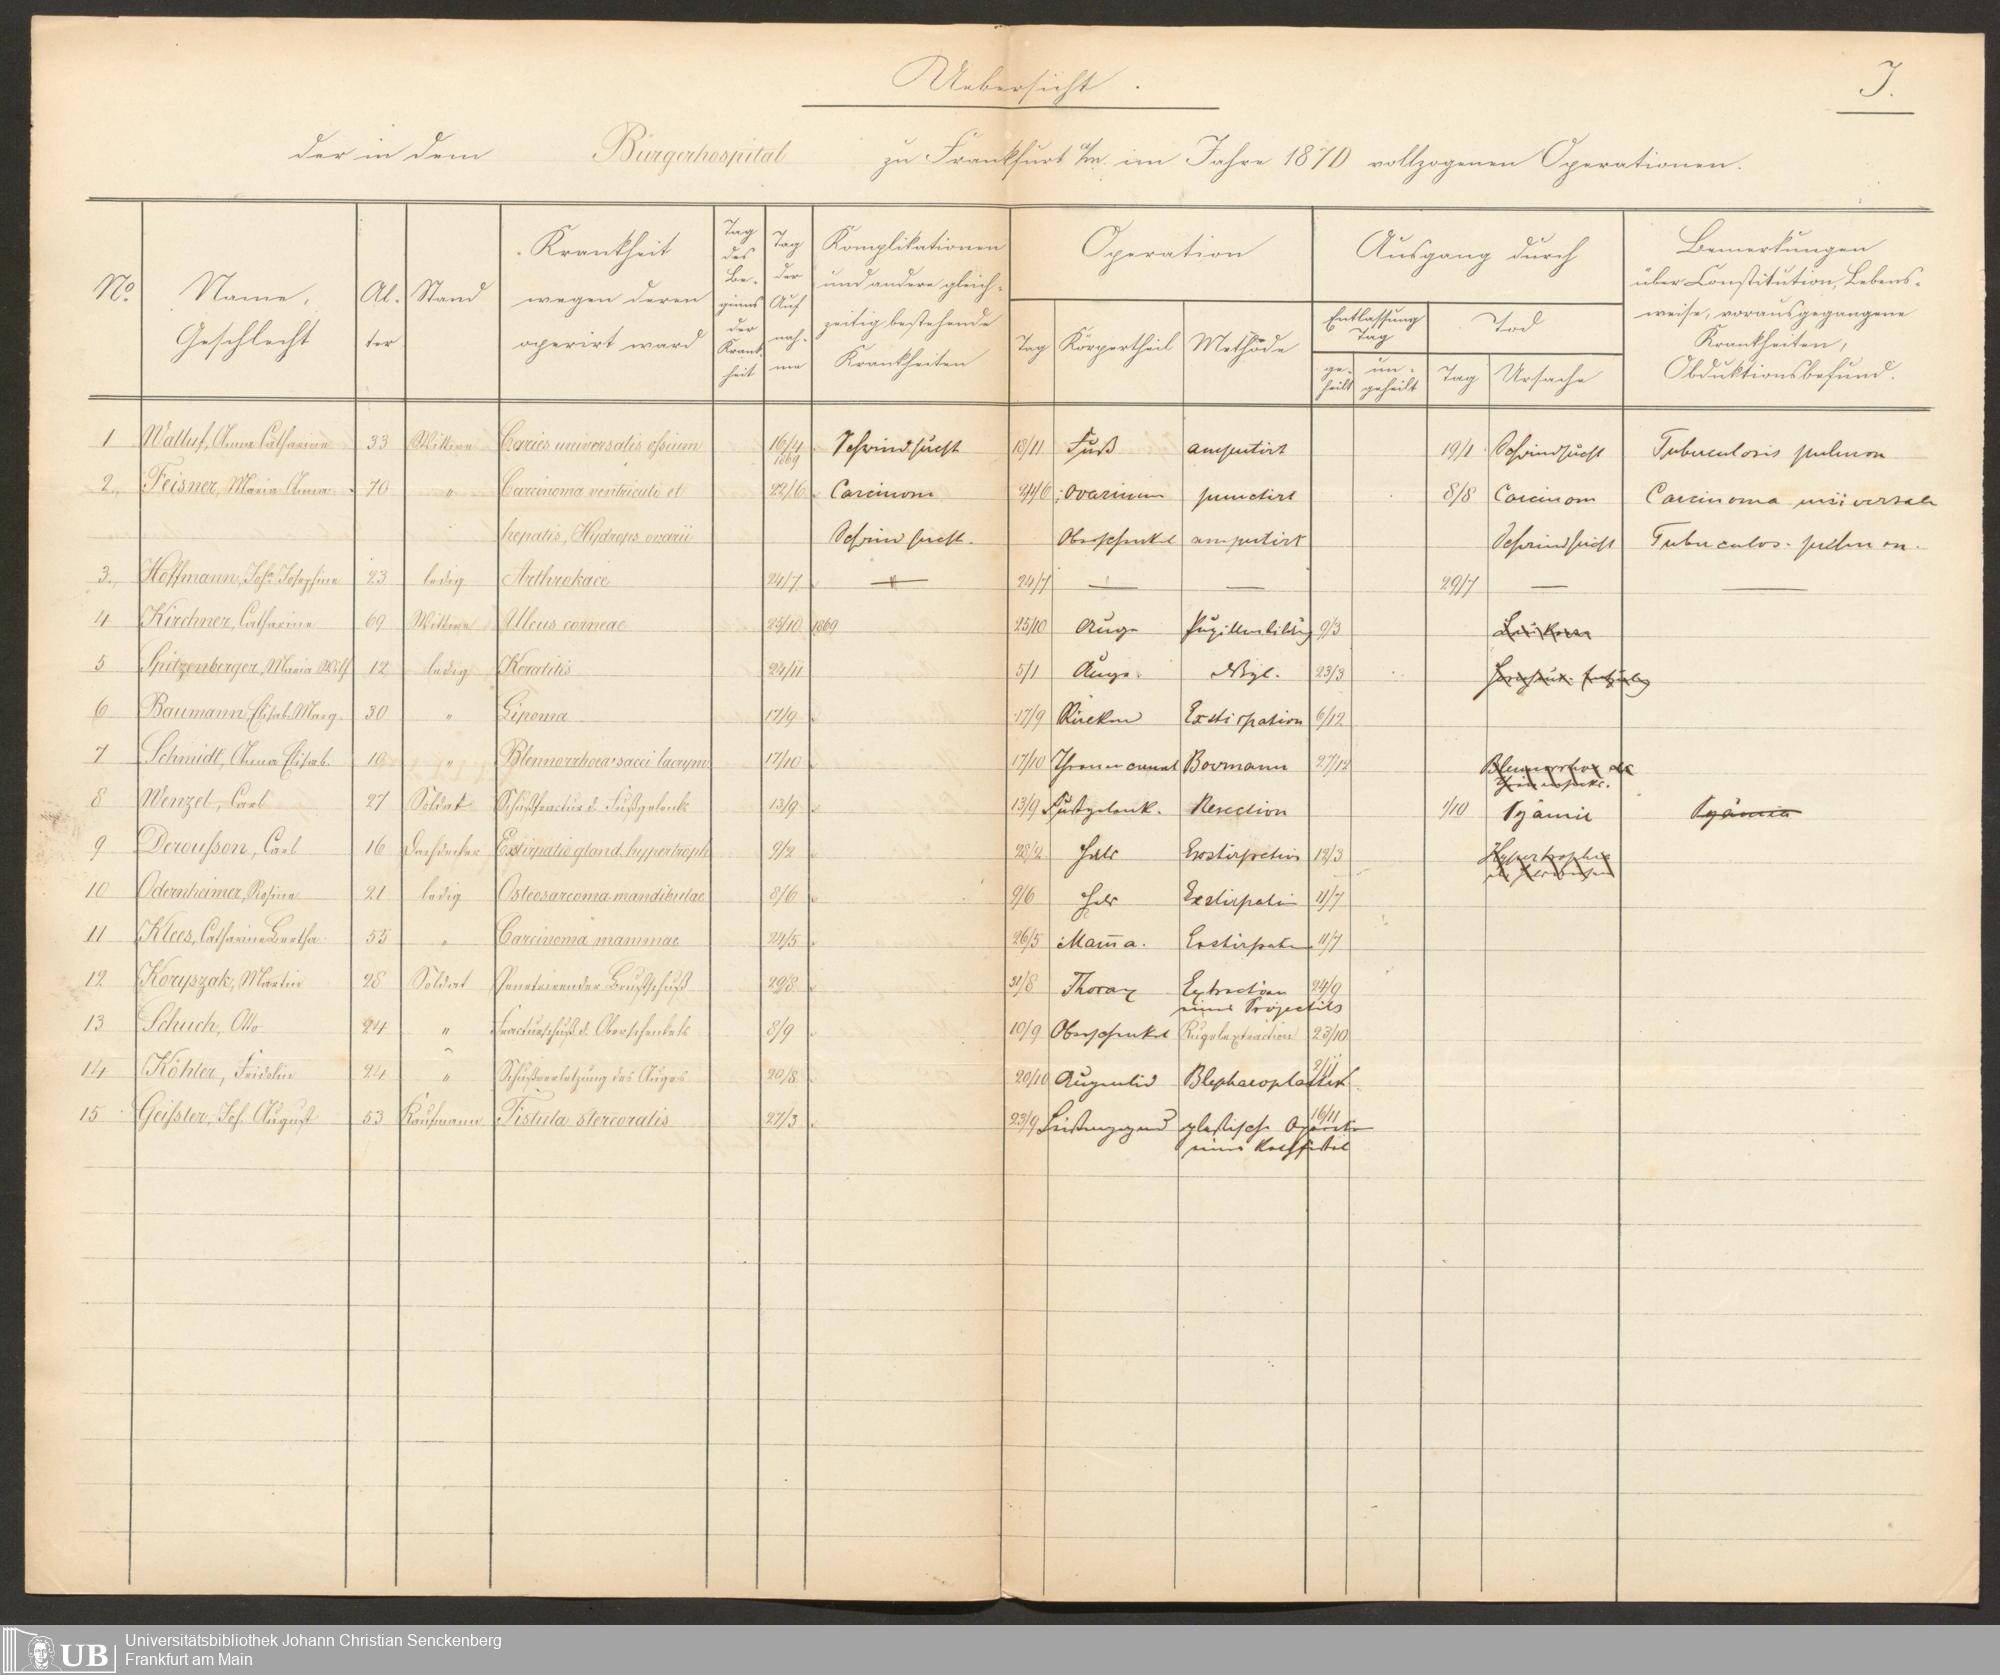 Uebersicht.
I.
der in dem Bürgerhospital zu Frankfurt a/m. im Jahre 1870 vollzogenen Operationen.
No. Name, Geschlecht Al-ter Stand Krankheit wegen deren operirt ward Tag des Be-ginns der Krank-heit Tag der Auf nah-me Komplikationen und andere gleich-zeitig bestehende Krankheiten Operation Tag Körpertheil Methode Ausgang durch Entlassung Tag ge-heilt un-geheilt Tod Tag Ursache Bemerkungen über Constitution, Lebens-weise, vorausgegangene Krankheiten, Obduktionsbefund.
1 Walluf, Anna Catharine 33 Wittwe Caries universalis ossium 16/4 1869 Schwindsucht 18/11 Fuß amputirt 19/1 Schwindsucht Tuberculosis pulmon
2., Feisner, Maria Anna 70 " Carcinoma ventriculi et 22/6 Carcinom Ovarium punctirt 8/8 Carcinom Carcinoma universale
hepatis, Hydrops ovarii Schwindsucht. Oberschenkel amputirt Schwindsucht Tuberculos. pulmon.
3., Hoffmann, Josephine 23 ledig Arthrokace 24/7 — 24/7 — — 29/7 — —
4 Kirchner, Catharine 69 Wittwe Ulcus corneae 25/10 1869 25/10 Auge Pupillenbildung 9/3
5 Spitzenberger, Maria 12 ledig Keratitis 24/11 5/1 Auge. 23/3
6 Baumann, Elisab. Marg. 30 " Lipoma 17/9 17/9 Rücken Exstirpation 6/12
7 Schmidt, Anna Elisab. 19 " Blennorrhoea sacci lacrym 17/10 17/10 Thränencanal Bowmann 27/12 Blennorrhoe des
8 Wenzel, Carl 27 Soldat Schußfractur d. Fußgelenks 13/9 13/9 Fußgelenk. Resection 1/10 Pyämie Pyämia
9 Derousson, Carl 16 Dachdecker Exstirpatio gland. hypertroph 9/2 28/2 Hals Exstirpation 12/3 Hypertrophie
10 Odernheimer, Rosine 21 ledig Osteosarcoma mandibulae 8/6 9/6 Hals Exstirpation 11/7
11 Klees, Catharine Bertha 55 " Carcinoma mammae 24/5 26/5 Mam̄a. Exstirpation 11/7
12 Koryszak, Martin 28 Soldat Penetrirender Brustschuß 29/8 31/8 Thorax Extraction 24/9
eines Projectils
13 Schuch, Otto 24 " Fracturschuß d. Oberschenkels 8/9 10/9 Oberschenkel Kugelextraction 23/10
14 Köhler, Fridolin 24 " Schußverletzung des Auges 20/8 20/10 Augenlid Blepharoplastik 2/11
15 Geissler, Joh. August 53 Kaufmann Fistula stercoralis 27/3 23/9 Leistengegend plastische Operation 16/11
einer Kothfistel
UB Universitätsbibliothek Johann Christian Senckenberg
Frankfurt am Main